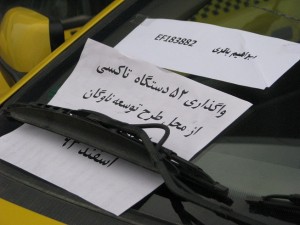 EF183882
واگذاری ۵۲ دستگاه تاکسی
از محل طرح توسعه ناوگان
اسفند ۹۲